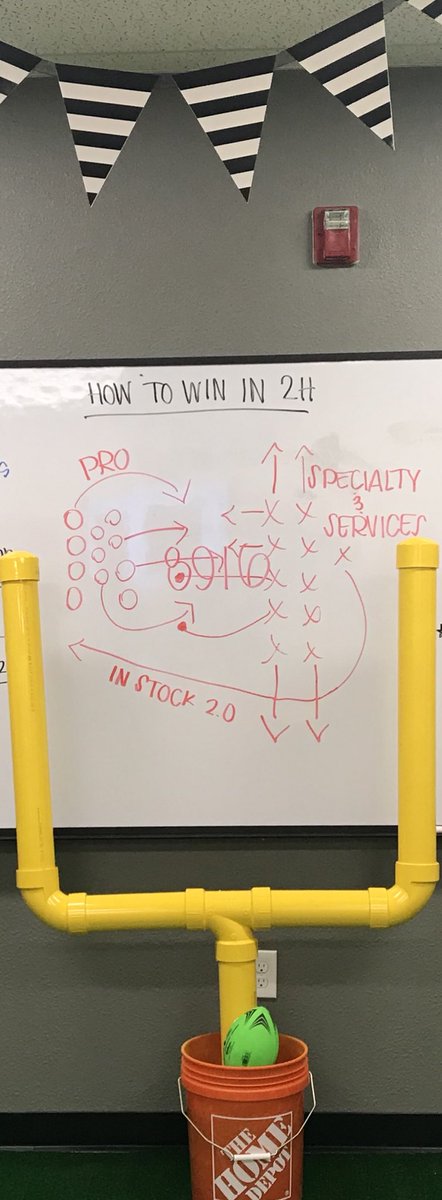 HOW TO WIN IN 2H
PRO
SPECIALTY
&
SERVICES
8976
IN STOCK 2.0
THE
HOME
DEPOT